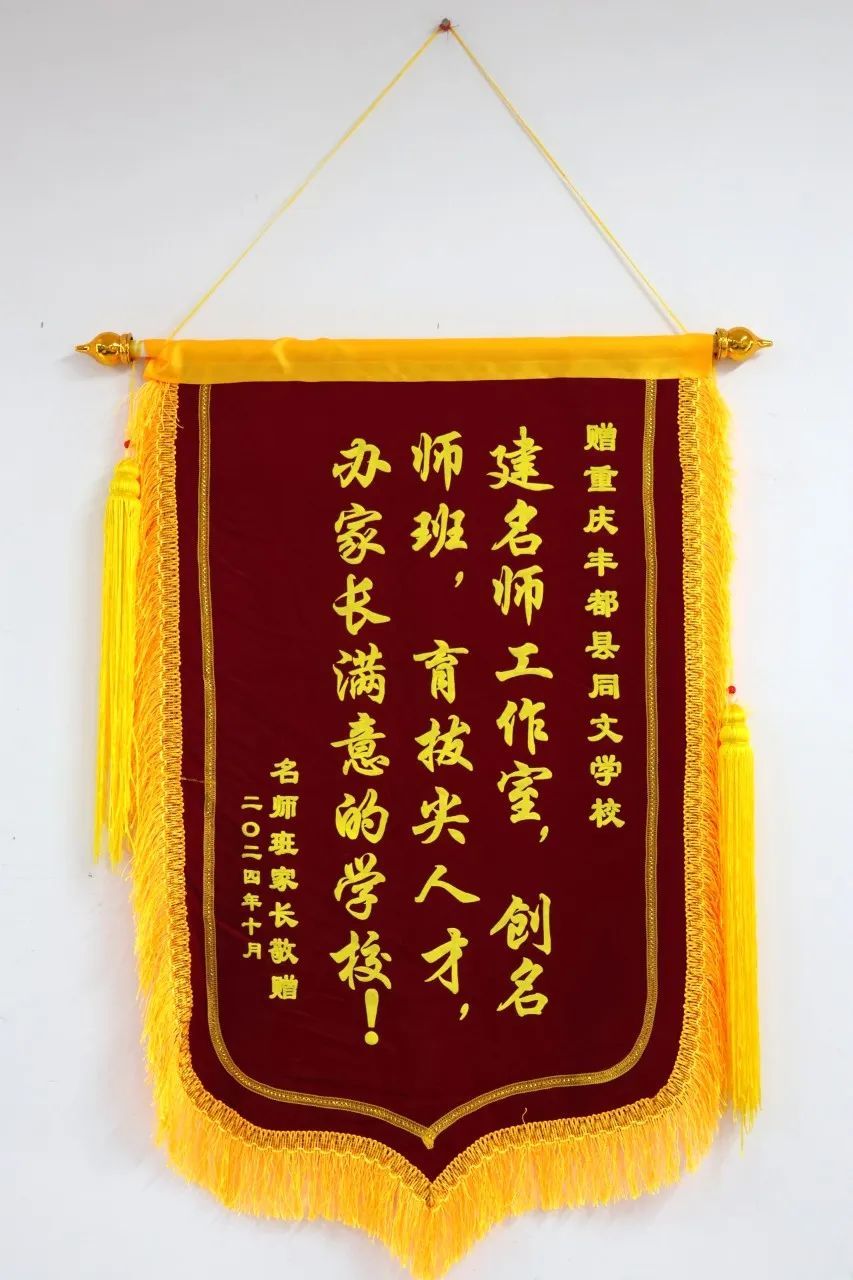 赠重庆丰都县同文学校
建名师工作室，创名
师班，育拔尖人才，
办家长满意的学校！
名师班家长敬赠
二〇二四年十月